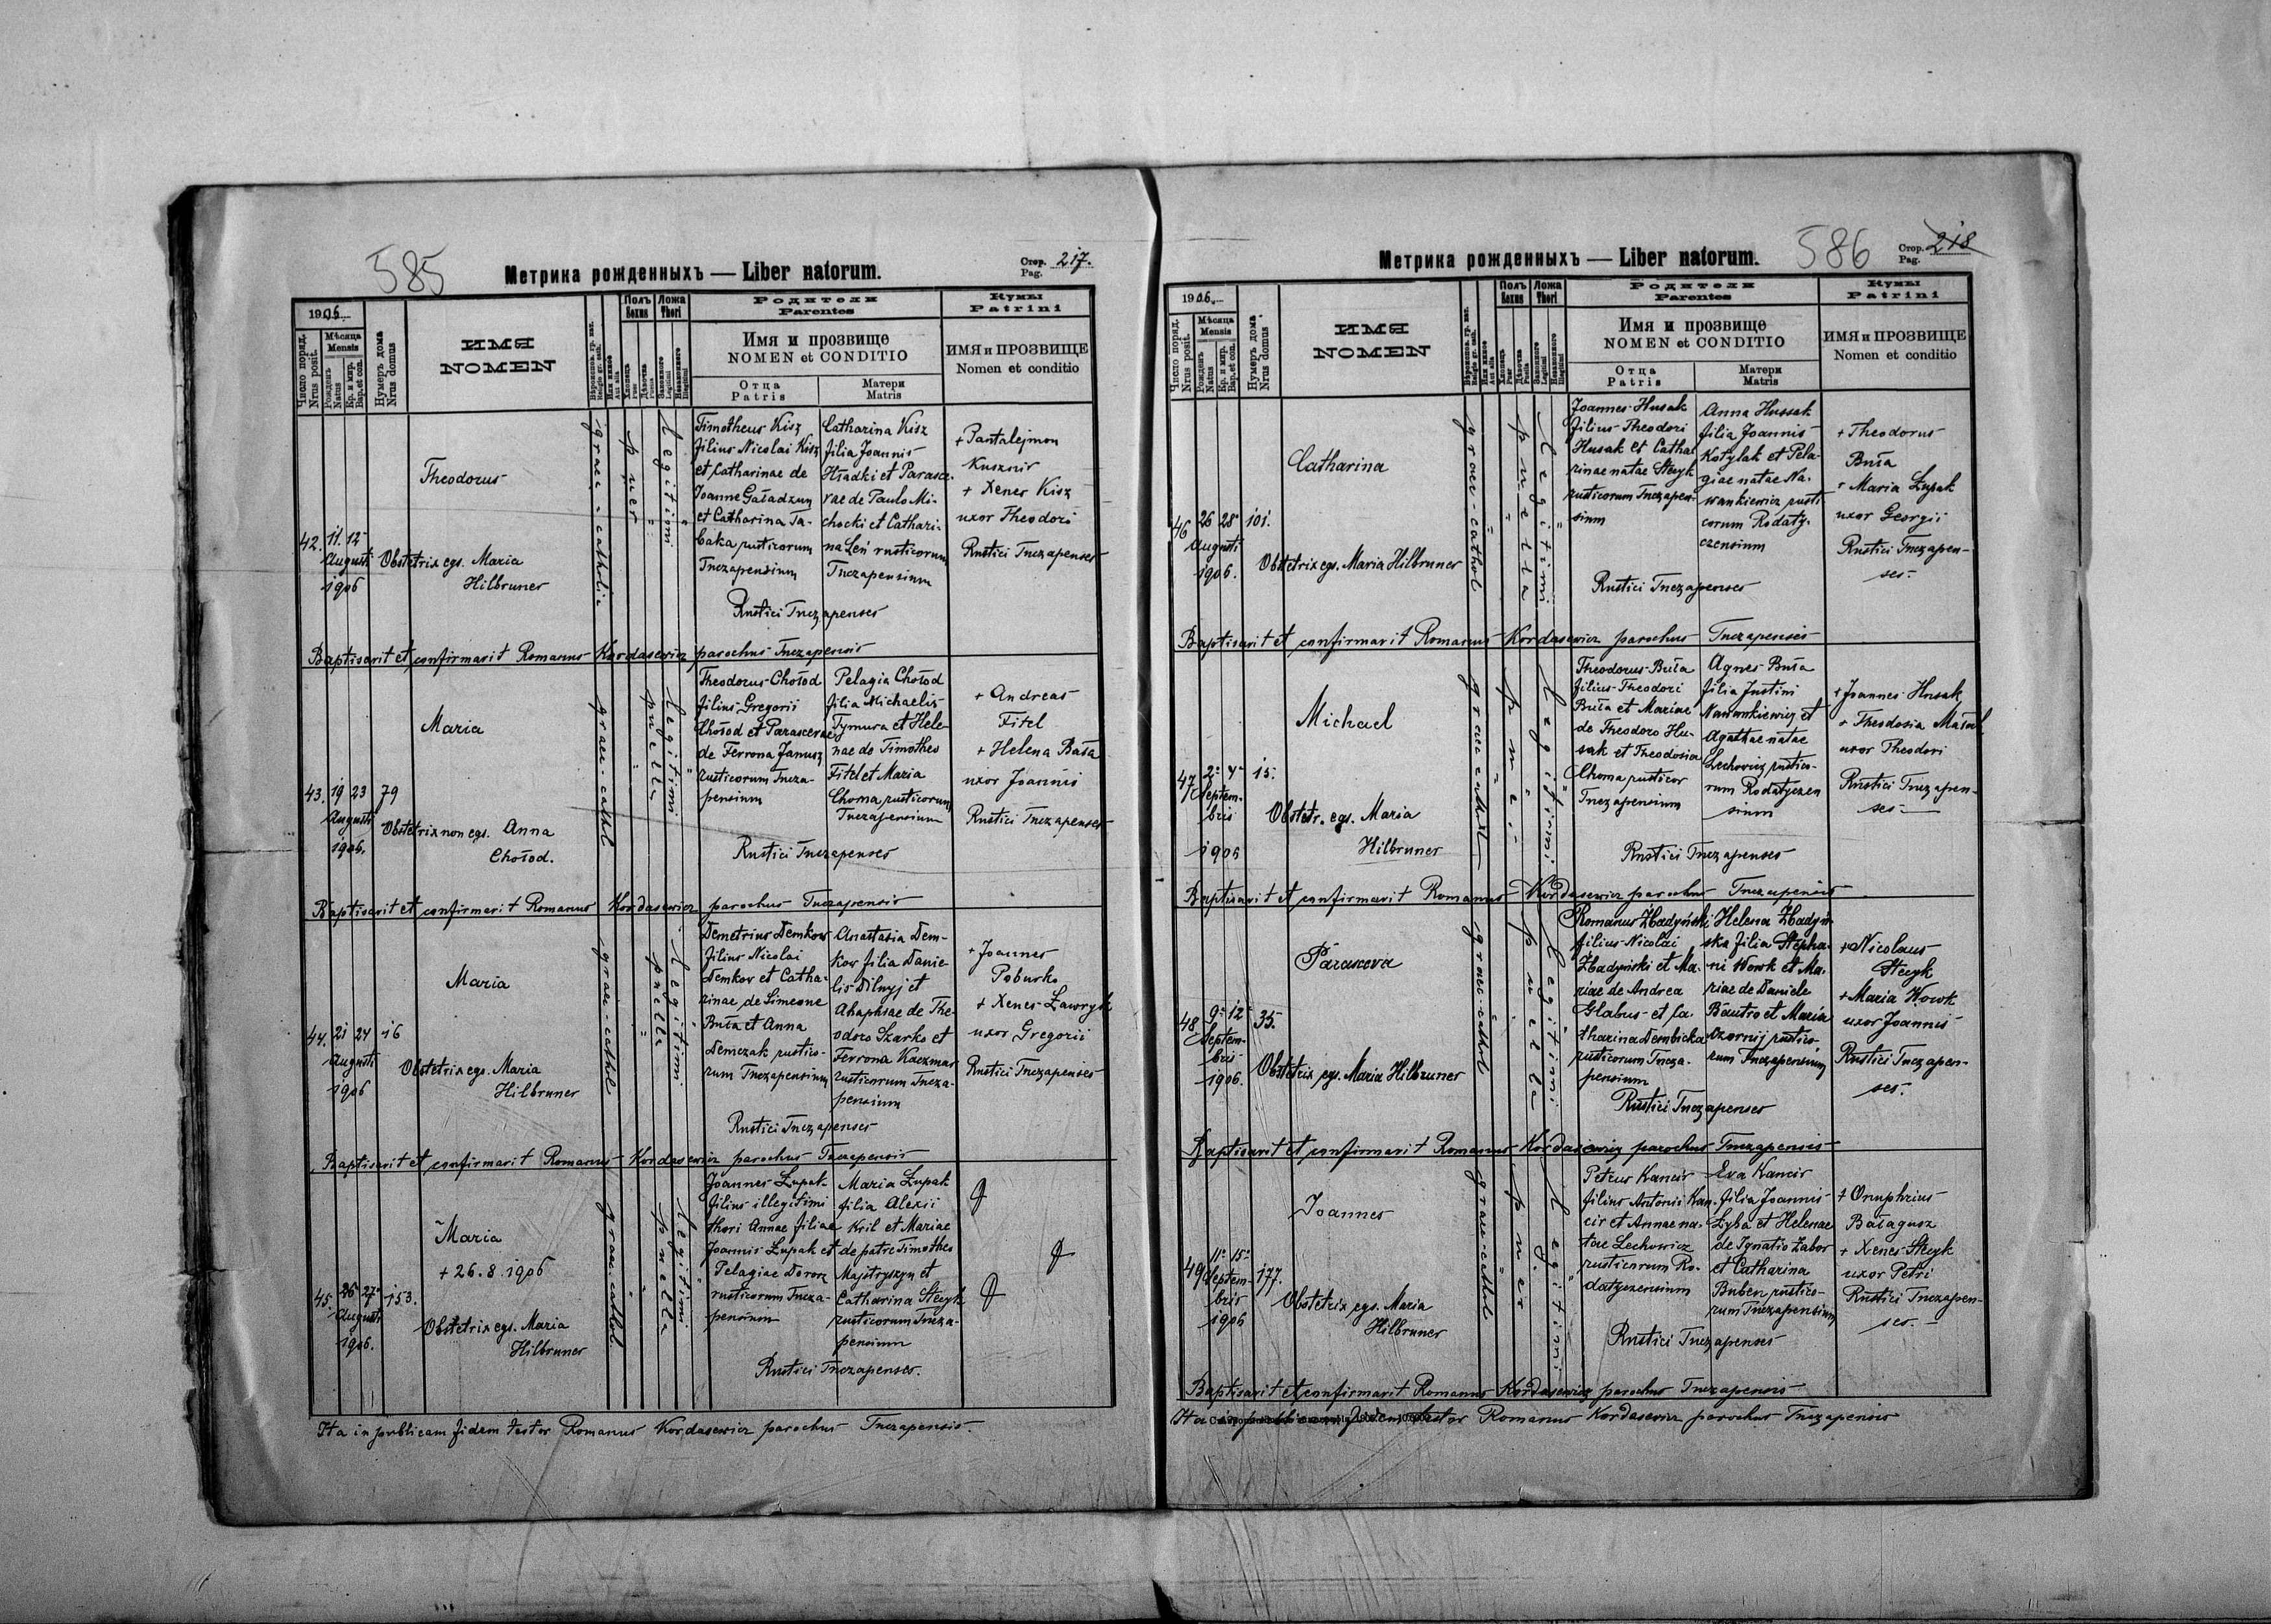 585
Метрика рожденныхъ — Liber natorum.
Стор. 217.
Pag.
1906
Число поряд.
Nrus posit.
Мѣсяца
Mensis
Рожденъ
Natus
Кр. и мир.
Bap. et con.
Нумеръ дома
Nrus domus
ИМЯ
NOMEN
Полъ
Sexus
Ложа
Thori
Родители
Parentes
Имя и прозвище
NOMEN et CONDITIO
Отца
Patris
Матери
Matris
Кумы
Patrini
ИМЯ и ПРОЗВИЩЕ
Nomen et conditio
42.
11. 12
Augusti
1906
Theodorus
Obstetrix egs. Maria
Hilbruner
graec - catholic
puer
Legitimi
Timotheus Kisz
filius Nicolai Kisz
et Catharinae de
Joanne Gaładzun
et Catharina Ta-
baka rusticorum
Tuczapensium
Catharina Kisz
filia Joannis
Hładki et Parasce-
vae de Paulo Mi-
chocki et Cathari-
na Leń rusticorum
Tuczapensium
Rustici Tuczapenses
+ Pantalejmon
Kusznir
+ Xenes Kisz
uxor Theodori
Rustici Tuczapenses
Baptisavit et confirmavit Romanus Kordasewicz parochus Tuczapensis
43.
19 23 79
Augusti
1906.
Maria
Obstetrix non egs. Anna
Chołod.
graec - cathol
puella
Legitimi
Theodorus Chołod
filius Gregorii
Chołod et Parascevae
de Ferrona Janusz
rusticorum Tucza-
pensium
Pelagia Chołod
filia Michaelis
Tymura et Hele-
nae de Timotheo
Fitel et Maria
Choma rusticorum
Tuczapensium
Rustici Tuczapenses
+ Andreas
Fitel
+ Helena Bała
uxor Joannis
Rustici Tuczapenses
Baptisavit et confirmavit Romanus Kordasewicz parochus Tuczapensis
44.
21 24 16
Augusti
1906
Maria
Obstetrix egs. Maria
Hilbruner
graec - cathol
puella
Legitimi
Demetrius Demkow
filius Nicolai
Demkow et Catha-
rinae de Simeone
Buła et Anna
Demczak rustico-
rum Tuczapensium
Anastasia Dem-
kow filia Danie-
lis Dilnyj et
Ahaphiae de The-
odoro Szarko et
Ferrona Kaczmar
rusticorum Tucza-
pensium
Rustici Tuczapenses
+ Joannes
Poburko
+ Xenes Ławryk
uxor Gregorii
Rustici Tuczapenses
Baptisavit et confirmavit Romanus Kordasewicz parochus Tuczapensis
45.
26 27 153.
Augusti
1906.
Maria
+ 26.8.1906
Obstetrix egs. Maria
Hilbruner
graec cathol.
puella
Legitimi
Joannes Łupak
filius illegitimi
thori Annae filiae
Joannis Łupak et
Pelagiae Dorosz
rusticorum Tucza-
pensium
Maria Łupak
filia Alexii
Kril et Mariae
de patre Timotheo
Majstryszyn et
Catharina Stecyk
rusticorum Tucza-
pensium
Rustici Tuczapenses.
Ita in publicam fidem testor Romanus Kordasewicz parochus Tuczapensis.
586
Метрика рожденныхъ — Liber natorum.
Стор. 218
Pag.
1906
Число поряд.
Nrus posit.
Мѣсяца
Mensis
Рожденъ
Natus
Кр. и мир.
Bap. et con.
Нумеръ дома
Nrus domus
ИМЯ
NOMEN
Полъ
Sexus
Ложа
Thori
Родители
Parentes
Имя и прозвище
NOMEN et CONDITIO
Отца
Patris
Матери
Matris
Кумы
Patrini
ИМЯ и ПРОЗВИЩЕ
Nomen et conditio
46
26 28 101.
Augusti
1906.
Catharina
Obstetrix egs. Maria Hilbruner
graec - cathol
puella
Legitimi
Joannes Husak
filius Theodori
Husak et Catha-
rinae natae Stecyk
rusticorum Tuczapen-
sium
Anna Hussak
filia Joannis
Kotylak et Pela-
giae natae Na-
wankiewicz rusti
corum Rodaty-
czensium
Rustici Tuczapenses
+ Theodorus
Buła
+ Maria Łupak
uxor Georgii
Rustici Tuczapen-
ses.
Baptisavit et confirmavit Romanus Kordasewicz parochus Tuczapensis
47
2. 4 15.
Septem-
bris
1906
Michael
Obstetr. egs. Maria
Hilbruner
graec cathol
puer
Legitimi
Theodorus Buła
filius Theodori
Buła et Mariae
de Theodoro Hu-
sak et Theodosia
Choma rusticor
Tuczapensium
Agnes Buła
filia Justini
Nawankiewicz et
Agathae natae
Lechowicz rustico-
rum Rodatyczen
sium
Rustici Tuczapenses
+ Joannes Husak
+ Theodosia
uxor Theodori
Rustici Tuczapen-
ses
Baptisavit et confirmavit Romanus Kordasewicz parochus Tuczapensis
48
9. 12 35.
Septem-
bris
1906.
Parasceva
Obstetrix egs. Maria Hilbruner
graec - cathol
puella
Legitimi
Romanus Zbadyński
filius Nicolai
Zbadyński et Ma-
riae de Andrea
Glabus et Ca-
tharina Dembicka
rusticorum Tucza-
pensium
Helena Zbadyń
ska filia Stepha-
ni Wowk et Ma-
riae de Daniele
Bautro et Maria
Czornij rustico-
rum Tuczapensium
Rustici Tuczapenses
+ Nicolaus
Stecyk
+ Maria Wowk
uxor Joannis
Rustici Tuczapen-
ses.
Baptisavit et confirmavit Romanus Kordasewicz parochus Tuczapensis
49.
11. 15. 177.
Septem-
bris
1906
Joannes
Obstetrix egs. Maria
Hilbruner
graec - cathol
puer
Legitimi
Petrus Kancir
filius Antonii Kan-
cir et Annae na-
tae Lechowicz
rusticorum Ro-
datyczensium
Eva Kancir
filia Joannis
Zyba et Helenae
de Ignatio Zabor
et Catharina
Buben rustico-
rum Tuczapensium
Rustici Tuczapenses
+ Onuphrius
Bałagusz
+ Xenes Stecyk
uxor Petri
Rustici Tuczapen-
ses.
Baptisavit et confirmavit Romanus Kordasewicz parochus Tuczapensis
Ita fidem testor Romanus Kordasewicz parochus Tuczapensis